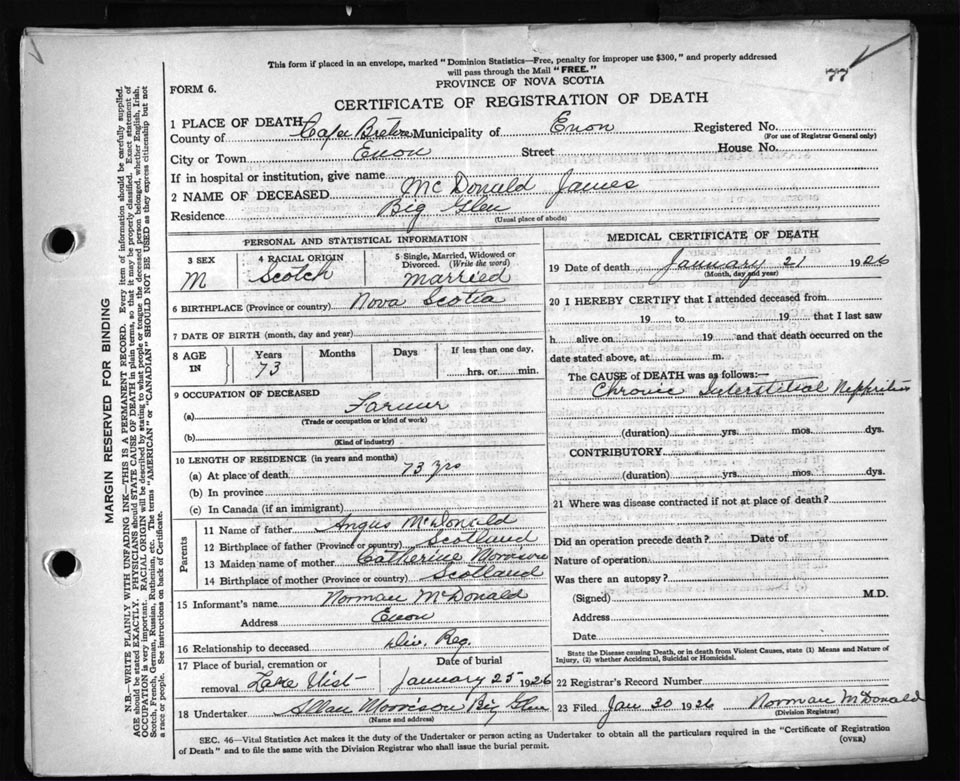 This form if placed in an envelope, marked "Dominion Statistics—Free, penalty for improper use $300," and properly addressed
will pass through the Mail "FREE."
77
PROVINCE OF NOVA SCOTIA
FORM 6.
CERTIFICATE OF REGISTRATION OF DEATH
1 PLACE OF DEATH
County of Cape Breton Municipality of Enon Registered No.
(For use of Registrar General only)
City or Town Enon Street House No.
If in hospital or institution, give name
2 NAME OF DECEASED McDonald James
Residence Big Glen
(Usual place of abode)
PERSONAL AND STATISTICAL INFORMATION
3 SEX 4 RACIAL ORIGIN 5 Single, Married, Widowed or
Divorced. (Write the word)
M Scotch Married
6 BIRTHPLACE (Province or country) Nova Scotia
7 DATE OF BIRTH (month, day and year)
8 AGE IN Years Months Days If less than one day,
73 hrs. or min.
9 OCCUPATION OF DECEASED
(a) Farmer
(Trade or occupation or kind of work)
(b)
(Kind of industry)
10 LENGTH OF RESIDENCE (in years and months)
(a) At place of death 73 yrs
(b) In province
(c) In Canada (if an immigrant)
Parents
11 Name of father Angus McDonald
12 Birthplace of father (Province or country) Scotland
13 Maiden name of mother Catherine Morrison
14 Birthplace of mother (Province or country) Scotland
15 Informant's name Norman McDonald
Address Enon
16 Relationship to deceased Div. Reg.
17 Place of burial, cremation or Date of burial
removal Lake Uist January 25 1926
18 Undertaker Allan Morrison Big Glen
(Name and address)
MEDICAL CERTIFICATE OF DEATH
19 Date of death January 21 1926
(Month, day and year)
20 I HEREBY CERTIFY that I attended deceased from
19 to 19 that I last saw
h alive on 19 and that death occurred on the
date stated above, at m.
The CAUSE of DEATH was as follows:—
Chronic Interstitial Nephritis
(duration) yrs. mos. dys.
CONTRIBUTORY
(duration) yrs. mos. dys.
21 Where was disease contracted if not at place of death?
Did an operation precede death? Date of
Nature of operation
Was there an autopsy?
(Signed) M.D.
Address
Date
State the Disease causing Death, or in death from Violent Causes, state (1) Means and Nature of
Injury, (2) whether Accidental, Suicidal or Homicidal.
22 Registrar's Record Number
23 Filed Jan 30 1926 Norman McDonald
(Division Registrar)
SEC. 46—Vital Statistics Act makes it the duty of the Undertaker or person acting as Undertaker to obtain all the particulars required in the "Certificate of Registration
of Death" and to file the same with the Division Registrar who shall issue the burial permit. (OVER)
MARGIN RESERVED FOR BINDING
N.B.—WRITE PLAINLY WITH UNFADING INK—THIS IS A PERMANENT RECORD. Every item of information should be carefully supplied.
AGE should be stated EXACTLY. PHYSICIANS should STATE CAUSE OF DEATH in plain terms, so that it may be properly classified. Exact statement of
OCCUPATION is very important. RACIAL ORIGIN will be described by stating to what people or tongue the deceased person belonged, whether English, Irish,
Scotch, French, German, Russian, Ruthenian, etc. The terms "AMERICAN" or "CANADIAN" SHOULD NOT BE USED as they express citizenship but not
a race or people. See instructions on back of Certificate.